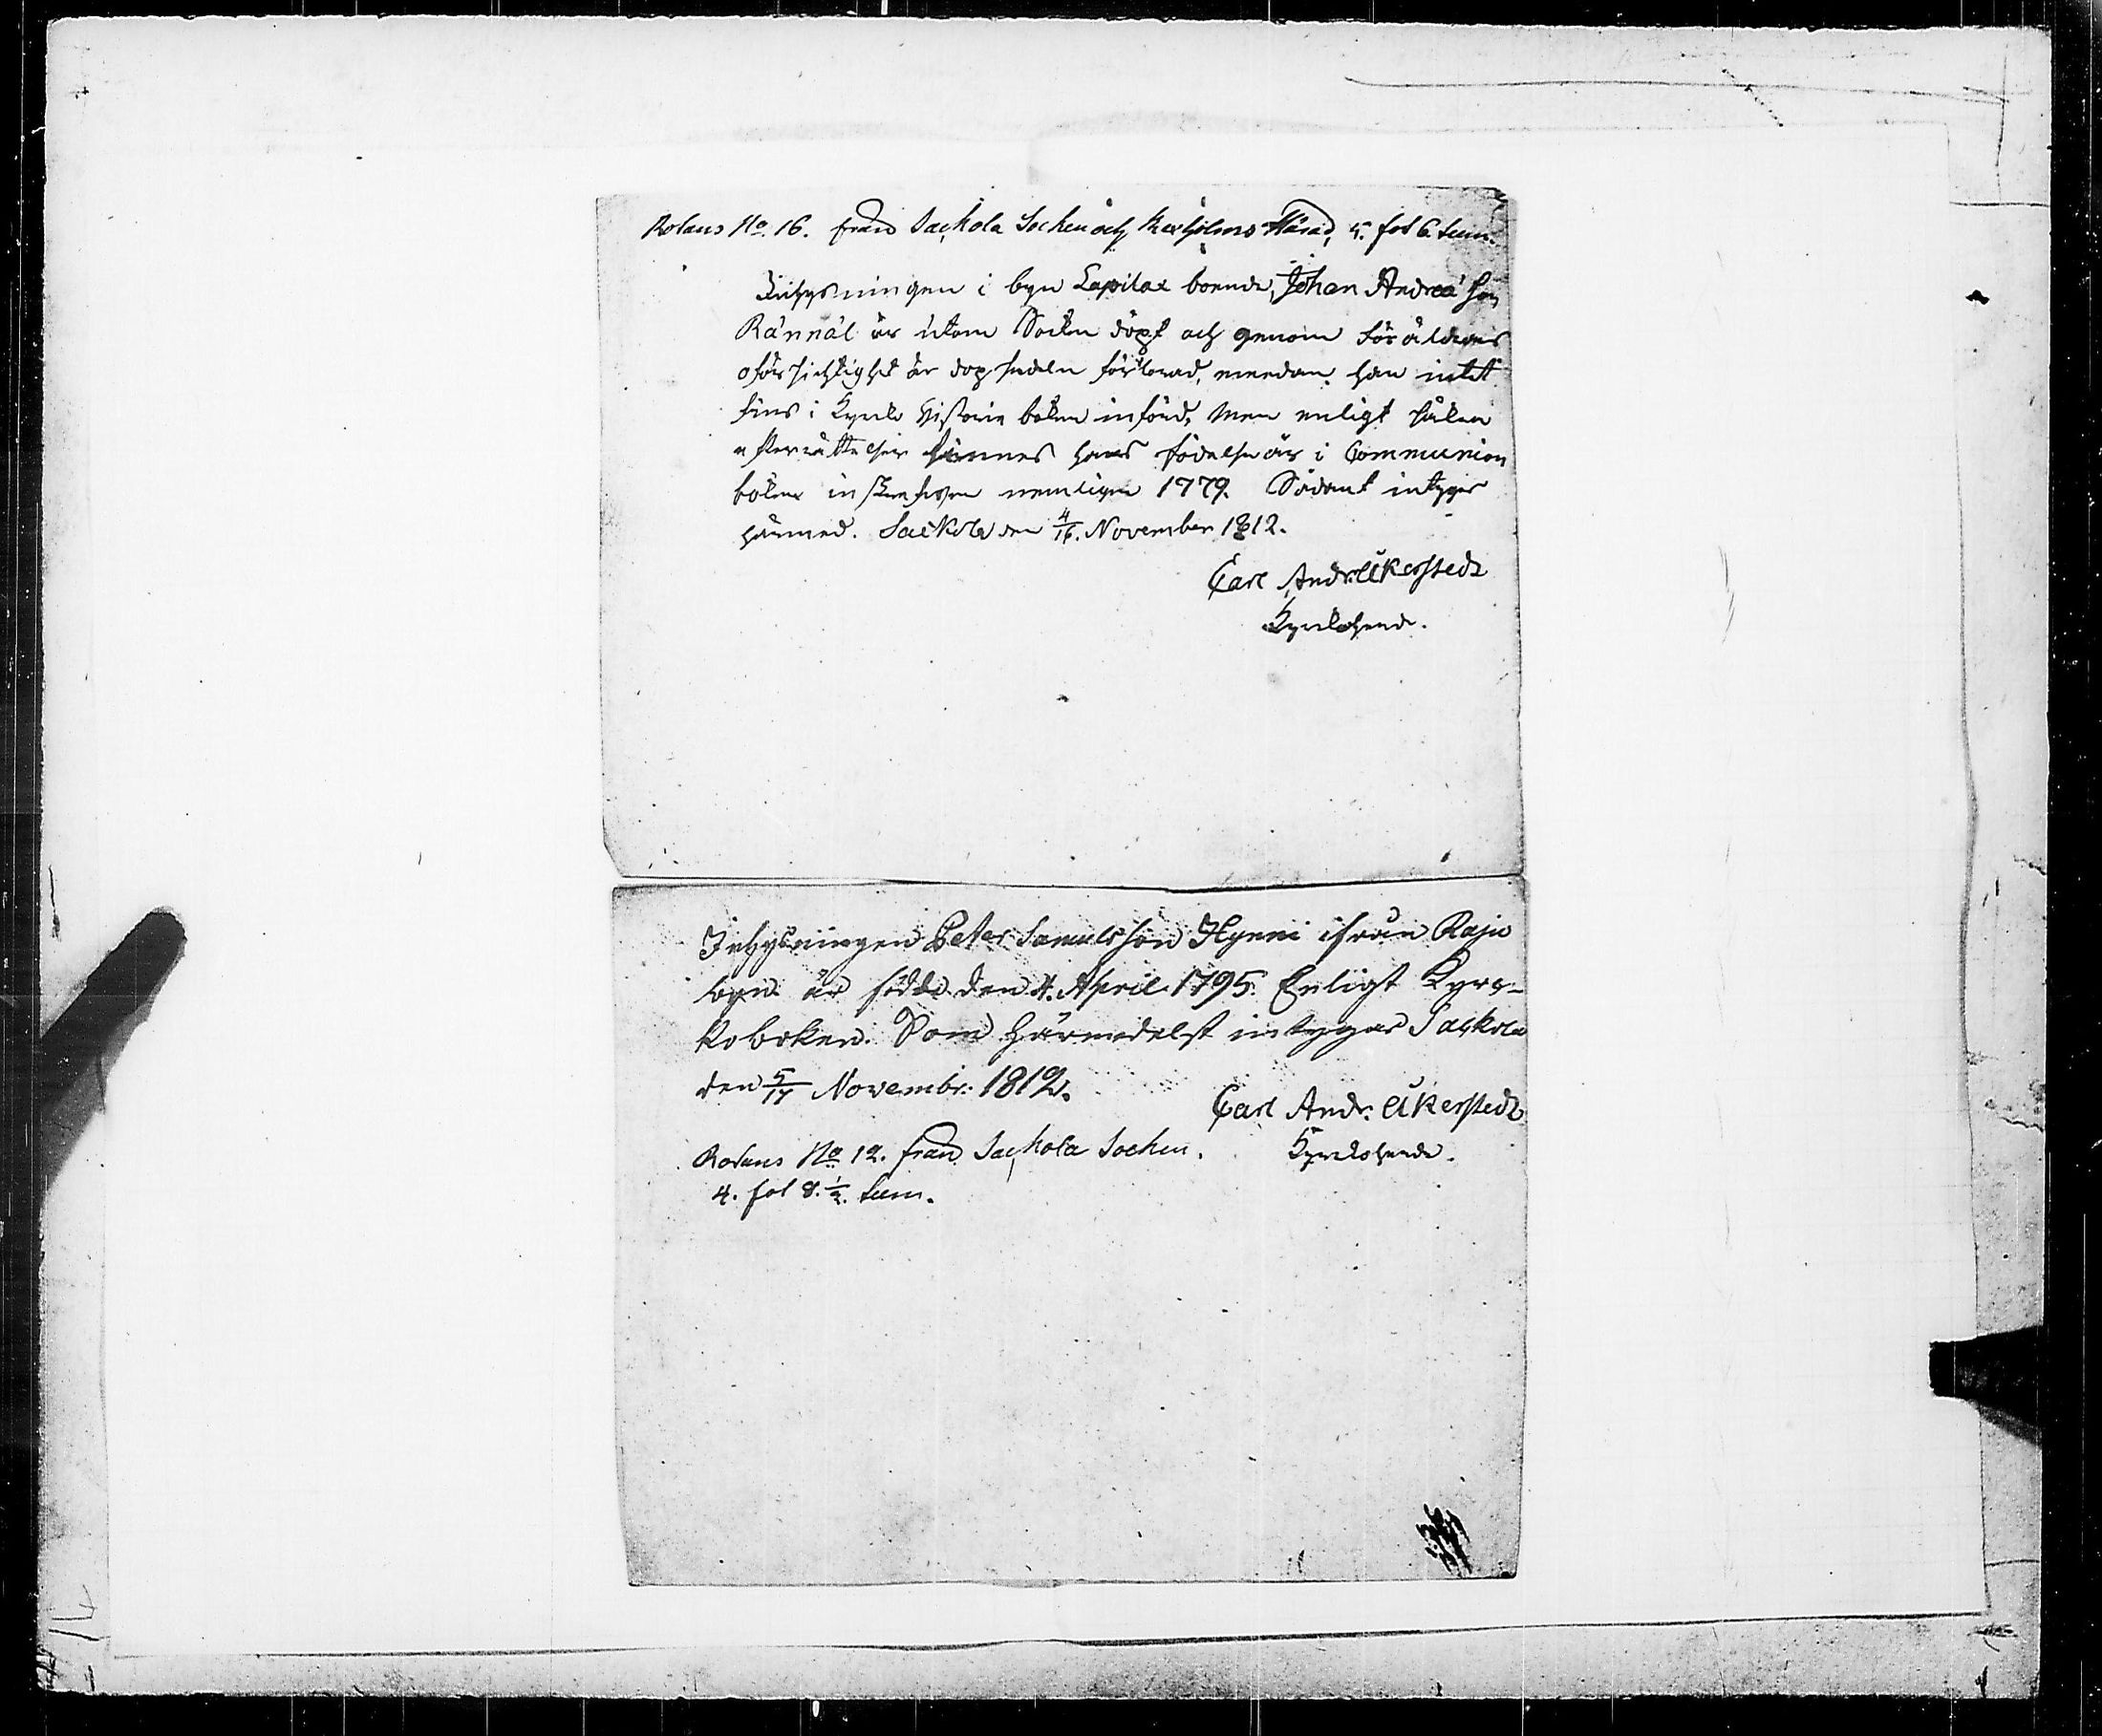 Rotans No. 16. från Sackola Socken och Kexholms Härad, 5. fot 6 tum.
Inhysningen i byn Lapilax boende, Johan Andreæ son
Rännäl är utom Socken döpt och genom föräldrars
oförsichtighet är dopsedeln förlorad, emedan han intet
fins i Kyrko Historie boken införd, Men enligt
efterrättelser finnes hans födelse år i Communion
boken inskrefven nemligen 1779. Sådant intygas
härmed. Sackola den 4/16. November 1812.
Carl Andr. Åkerstedt
Kyrkoherde.
Inhysningen Peter Samulsson Hynni ifrån Raju
byn är född den 4. April 1795. Enligt Kyrc-
koboken. Som härmedelst intygas Sackola
den 5/17 Novembr: 1812.
Carl Andr. Åkerstedt
Kyrckoherde.
Rotans No 12. från Sackola Socken.
4. fot 8. 1/2. tum.